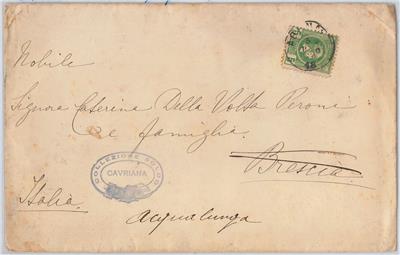 Nobile
Signora Caterina Della Volta Peroni
e famiglia.
Brescia.
COLLEZIONE
CAVRIANA
Italia.
Acqualunga